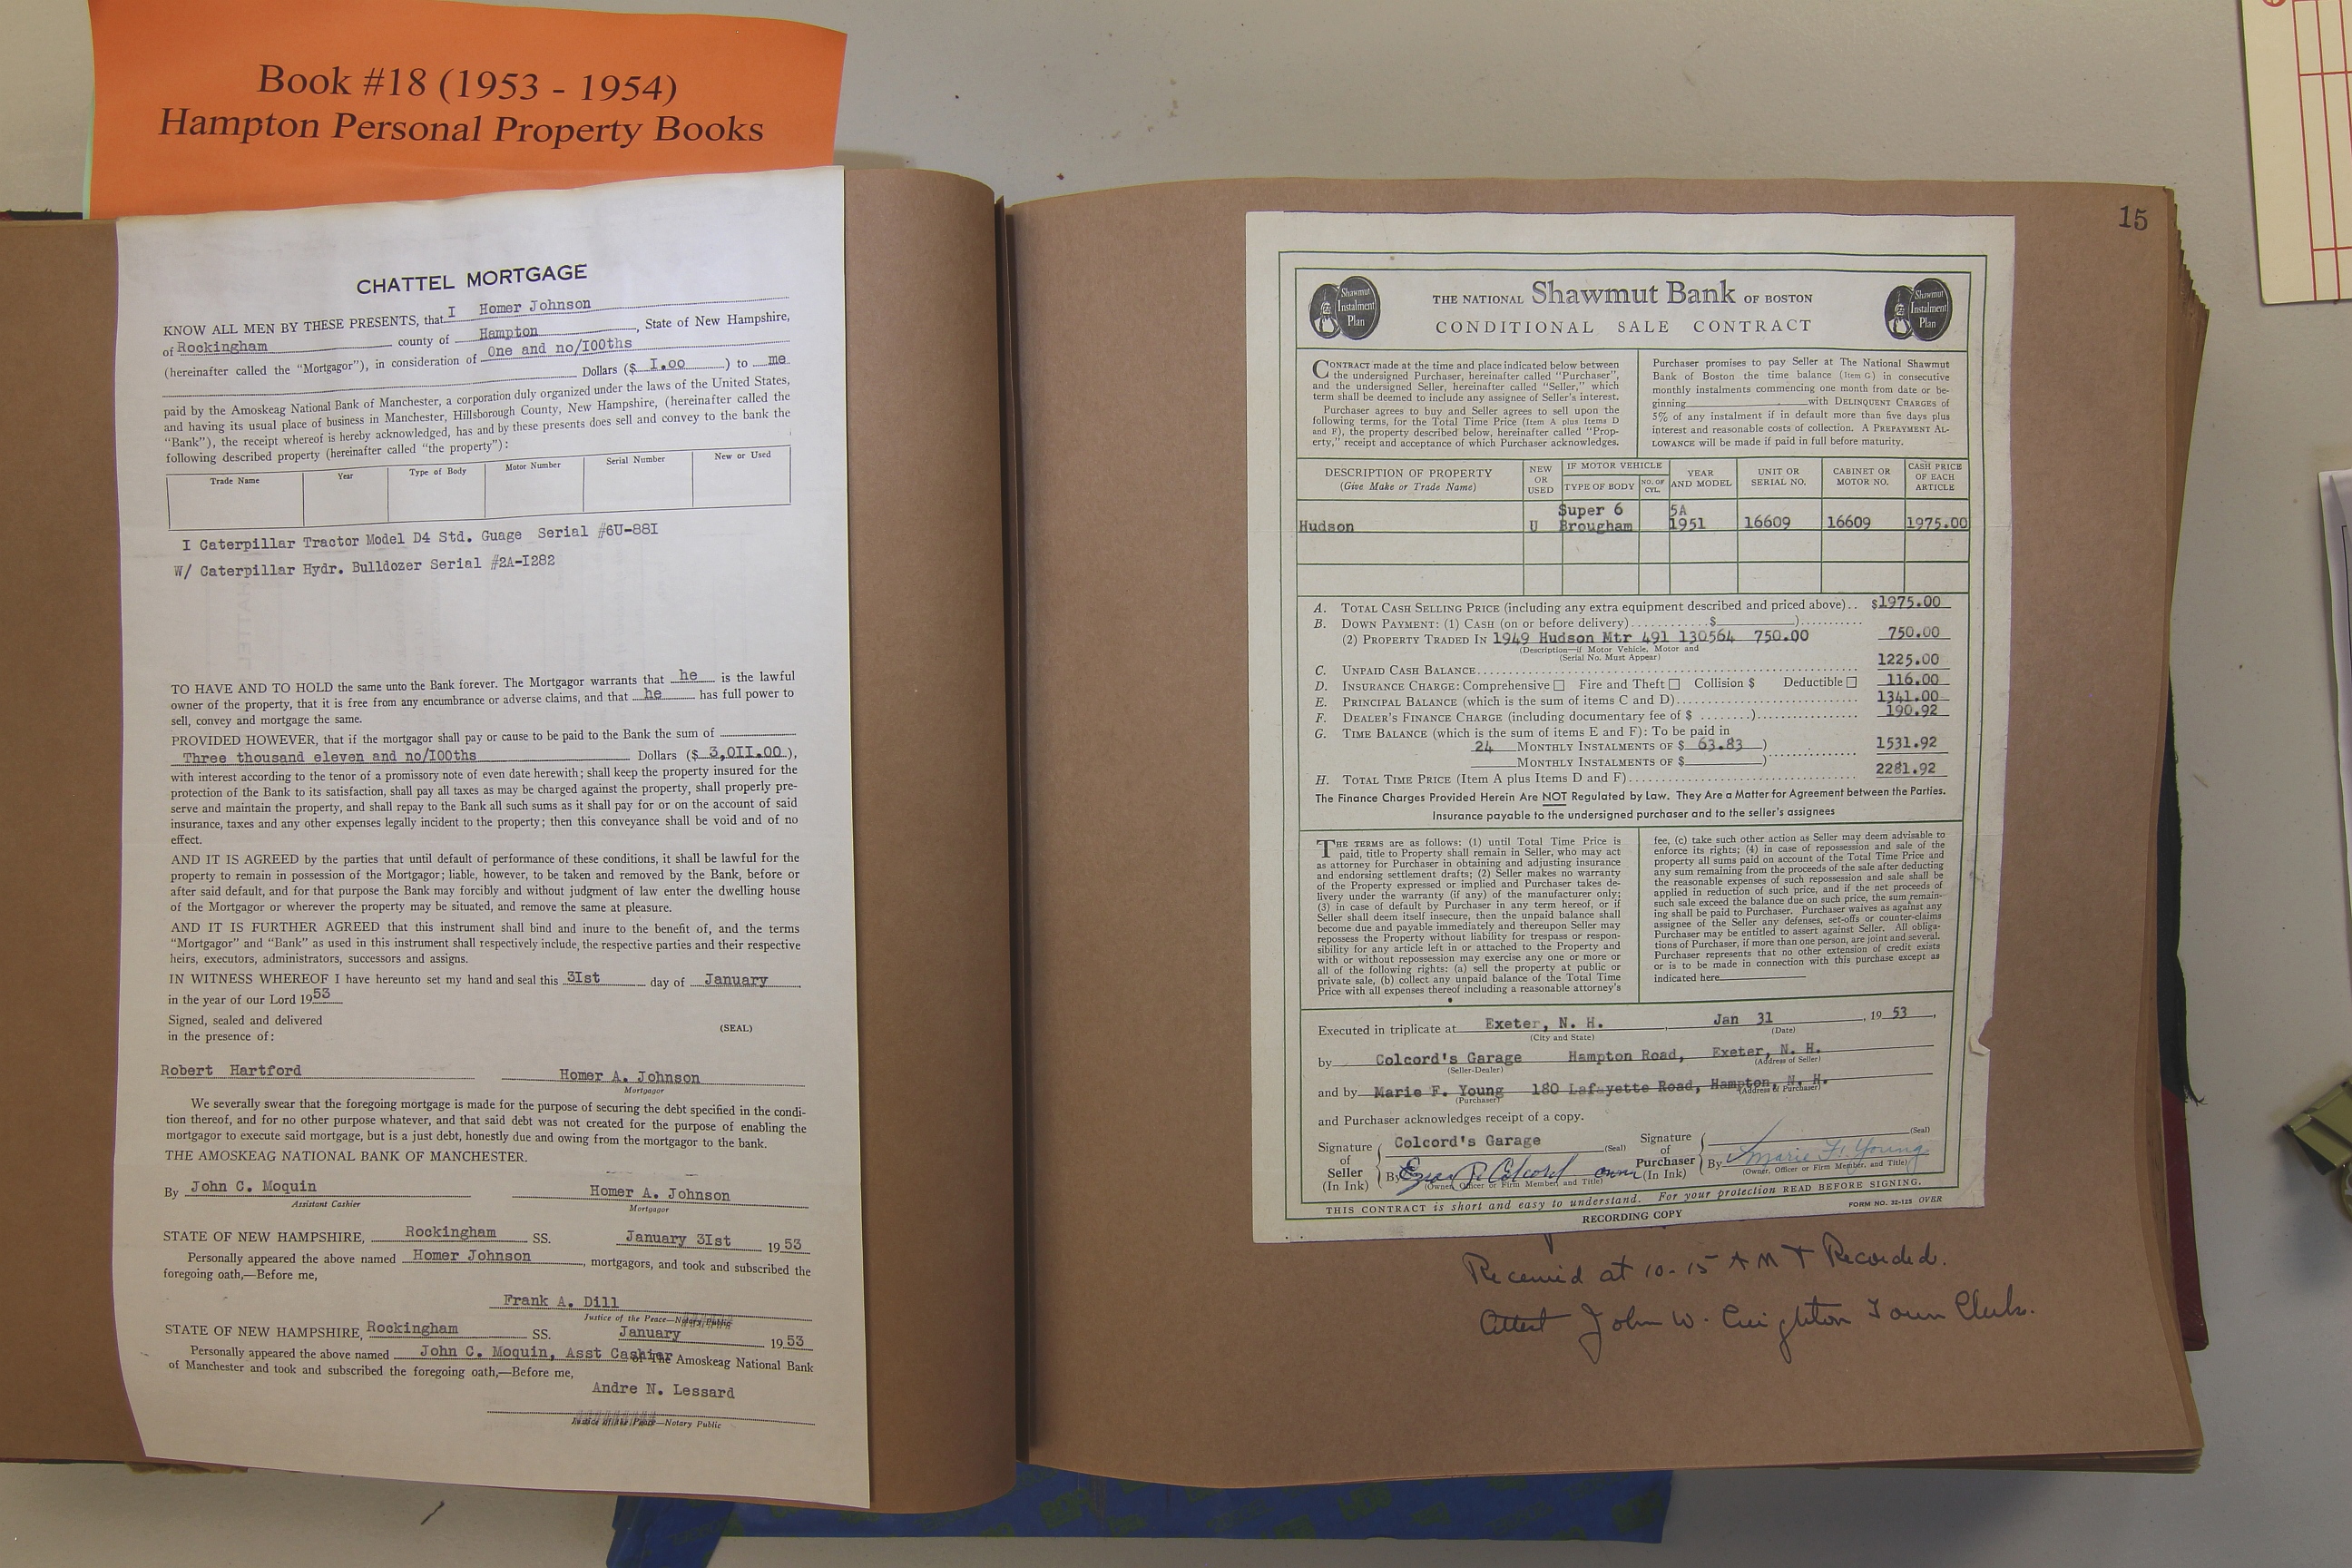 Book #18 (1953 - 1954)
Hampton Personal Property Books
CHATTEL MORTGAGE
KNOW ALL MEN BY THESE PRESENTS, that I Homer Johnson
of Rockingham county of Hampton, State of New Hampshire,
(hereinafter called the "Mortgagor"), in consideration of One and no/I00ths
Dollars ($ I.oo ) to me
paid by the Amoskeag National Bank of Manchester, a corporation duly organized under the laws of the United States,
and having its usual place of business in Manchester, Hillsborough County, New Hampshire, (hereinafter called the
"Bank"), the receipt whereof is hereby acknowledged, has and by these presents does sell and convey to the bank the
following described property (hereinafter called "the property"):
Trade Name Year Type of Body Motor Number Serial Number New or Used
I Caterpillar Tractor Model D4 Std. Guage Serial #6U-88I
W/ Caterpillar Hydr. Bulldozer Serial #2A-I282
TO HAVE AND TO HOLD the same unto the Bank forever. The Mortgagor warrants that he is the lawful
owner of the property, that it is free from any encumbrance or adverse claims, and that he has full power to
sell, convey and mortgage the same.
PROVIDED HOWEVER, that if the mortgagor shall pay or cause to be paid to the Bank the sum of
Three thousand eleven and no/I00ths Dollars ($ 3,0II.00 ),
with interest according to the tenor of a promissory note of even date herewith; shall keep the property insured for the
protection of the Bank to its satisfaction, shall pay all taxes as may be charged against the property, shall properly pre-
serve and maintain the property, and shall repay to the Bank all such sums as it shall pay for or on the account of said
insurance, taxes and any other expenses legally incident to the property; then this conveyance shall be void and of no
effect.
AND IT IS AGREED by the parties that until default of performance of these conditions, it shall be lawful for the
property to remain in possession of the Mortgagor; liable, however, to be taken and removed by the Bank, before or
after said default, and for that purpose the Bank may forcibly and without judgment of law enter the dwelling house
of the Mortgagor or wherever the property may be situated, and remove the same at pleasure.
AND IT IS FURTHER AGREED that this instrument shall bind and inure to the benefit of, and the terms
"Mortgagor" and "Bank" as used in this instrument shall respectively include, the respective parties and their respective
heirs, executors, administrators, successors and assigns.
IN WITNESS WHEREOF I have hereunto set my hand and seal this 3Ist day of January
in the year of our Lord 1953
Signed, sealed and delivered
in the presence of: (SEAL)
Robert Hartford Homer A. Johnson
Mortgagor
We severally swear that the foregoing mortgage is made for the purpose of securing the debt specified in the condi-
tion thereof, and for no other purpose whatever, and that said debt was not created for the purpose of enabling the
mortgagor to execute said mortgage, but is a just debt, honestly due and owing from the mortgagor to the bank.
THE AMOSKEAG NATIONAL BANK OF MANCHESTER.
By John C. Moquin Homer A. Johnson
Assistant Cashier Mortgagor
STATE OF NEW HAMPSHIRE, Rockingham SS. January 3Ist 1953
Personally appeared the above named Homer Johnson, mortgagors, and took and subscribed the
foregoing oath,—Before me,
Frank A. Dill
Justice of the Peace—Notary Public
STATE OF NEW HAMPSHIRE, Rockingham SS. January 1953
Personally appeared the above named John C. Moquin, Asst Cashier of The Amoskeag National Bank
of Manchester and took and subscribed the foregoing oath,—Before me,
Andre N. Lessard
Justice of the Peace—Notary Public
15
Shawmut Instalment Plan
THE NATIONAL Shawmut Bank OF BOSTON
CONDITIONAL SALE CONTRACT
Shawmut Instalment Plan
CONTRACT made at the time and place indicated below between
the undersigned Purchaser, hereinafter called "Purchaser",
and the undersigned Seller, hereinafter called "Seller," which
term shall be deemed to include any assignee of Seller's interest.
Purchaser agrees to buy and Seller agrees to sell upon the
following terms, for the Total Time Price (Item A plus Items D
and F), the property described below, hereinafter called "Prop-
erty," receipt and acceptance of which Purchaser acknowledges.
Purchaser promises to pay Seller at The National Shawmut
Bank of Boston the time balance (Item G) in consecutive
monthly instalments commencing one month from date or be-
ginning with DELINQUENT CHARGES of
5% of any instalment if in default more than five days plus
interest and reasonable costs of collection. A PREPAYMENT AL-
LOWANCE will be made if paid in full before maturity.
DESCRIPTION OF PROPERTY (Give Make or Trade Name) NEW OR USED IF MOTOR VEHICLE TYPE OF BODY NO. OF CYL. YEAR AND MODEL UNIT OR SERIAL NO. CABINET OR MOTOR NO. CASH PRICE OF EACH ARTICLE
Super 6 5A
Hudson U Brougham 1951 16609 16609 1975.00
A. TOTAL CASH SELLING PRICE (including any extra equipment described and priced above).. $1975.00
B. DOWN PAYMENT: (1) CASH (on or before delivery)...........$ )..........
(2) PROPERTY TRADED IN 1949 Hudson Mtr 491 130564 750.00 750.00
(Description—if Motor Vehicle, Motor and
(Serial No. Must Appear)
C. UNPAID CASH BALANCE 1225.00
D. INSURANCE CHARGE: Comprehensive ☐ Fire and Theft ☐ Collision $ Deductible ☐ 116.00
E. PRINCIPAL BALANCE (which is the sum of items C and D) 1341.00
F. DEALER'S FINANCE CHARGE (including documentary fee of $ ........) 190.92
G. TIME BALANCE (which is the sum of items E and F): To be paid in
24 MONTHLY INSTALMENTS OF $ 63.83 ) 1531.92
MONTHLY INSTALMENTS OF $ )
H. TOTAL TIME PRICE (Item A plus Items D and F) 2281.92
The Finance Charges Provided Herein Are NOT Regulated by Law. They Are a Matter for Agreement between the Parties.
Insurance payable to the undersigned purchaser and to the seller's assignees
THE TERMS are as follows: (1) until Total Time Price is
paid, title to Property shall remain in Seller, who may act
as attorney for Purchaser in obtaining and adjusting insurance
and endorsing settlement drafts; (2) Seller makes no warranty
of the Property expressed or implied and Purchaser takes de-
livery under the warranty (if any) of the manufacturer only;
(3) in case of default by Purchaser in any term hereof, or if
Seller shall deem itself insecure, then the unpaid balance shall
become due and payable immediately and thereupon Seller may
repossess the Property without liability for trespass or respon-
sibility for any article left in or attached to the Property and
with or without repossession may exercise any one or more or
all of the following rights: (a) sell the property at public or
private sale, (b) collect any unpaid balance of the Total Time
Price with all expenses thereof including a reasonable attorney's
fee, (c) take such other action as Seller may deem advisable to
enforce its rights; (4) in case of repossession and sale of the
property all sums paid on account of the Total Time Price and
any sum remaining from the proceeds of the sale after deducting
the reasonable expenses of such repossession and sale shall be
applied in reduction of such price, and if the net proceeds of
such sale exceed the balance due on such price, the sum remain-
ing shall be paid to Purchaser. Purchaser waives as against any
assignee of the Seller any defenses, set-offs or counter-claims
Purchaser may be entitled to assert against Seller. All obliga-
tions of Purchaser, if more than one person, are joint and several.
Purchaser represents that no other extension of credit exists
or is to be made in connection with this purchase except as
indicated here
Executed in triplicate at Exeter, N. H., Jan 31, 1953,
(City and State) (Date)
by Colcord's Garage Hampton Road, Exeter, N. H.
(Seller-Dealer) (Address of Seller)
and by Marie F. Young 180 Lafayette Road, Hampton, N. H.
(Purchaser) (Address of Purchaser)
and Purchaser acknowledges receipt of a copy.
Signature of Seller (In Ink) Colcord's Garage (Seal) Signature of Purchaser (In Ink) (Seal)
By Colcord By Marie F. Young
(Owner, Officer or Firm Member, and Title) (Owner, Officer or Firm Member, and Title)
THIS CONTRACT is short and easy to understand. For your protection READ BEFORE SIGNING.
RECORDING COPY FORM NO. 32-125 OVER
Received at 10-15 AM & Recorded.
Attest John W. Creighton Town Clerk.